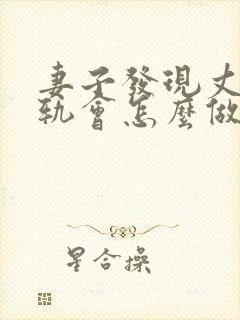 妻子發現丈
軌會怎麼做
星合操